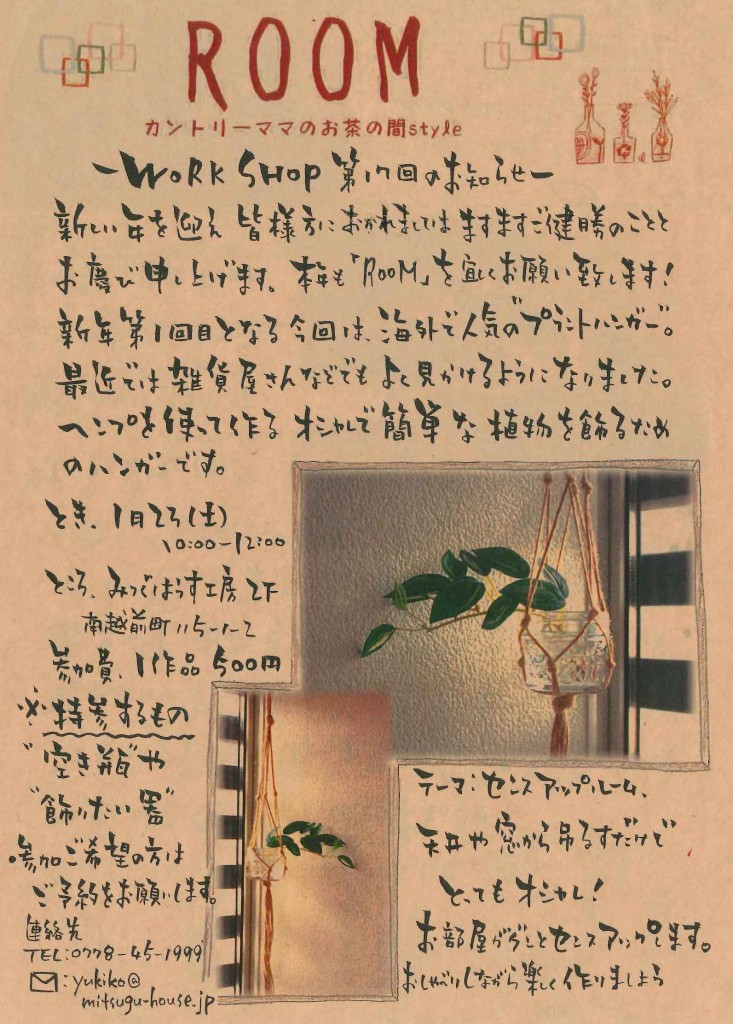 ROOM
カントリーママのお茶の間style
ーWORK SHOP 第17回のお知らせー
新しい年を迎え 皆様方におかれましては ますますご健勝のことと
お慶び申し上げます。本年も「ROOM」を宜しくお願い致します!
新年第1回目となる今回は、海外で人気の"プラントハンガー"。
最近では雑貨屋さんなどでも よく見かけるようになりました。
ヘンプを使って作る オシャレで簡単な 植物を飾るため
のハンガーです。
とき、1月23(土)
10:00ー12:00
ところ、みつぐはうす工房2F
南越前町115-1-2
参加費、1作品500円
※持参するもの
"空き瓶"や
"飾りたい器"
参加ご希望の方は
ご予約をお願いします。
連絡先
TEL:0778-45-1999
✉:yukiko@
mitsugu-house.jp
テーマ:センスアップルーム、
天井や窓から吊るすだけで
とってもオシャレ!
お部屋がグンとセンスアップします。
おしゃべりしながら楽しく作りましょう